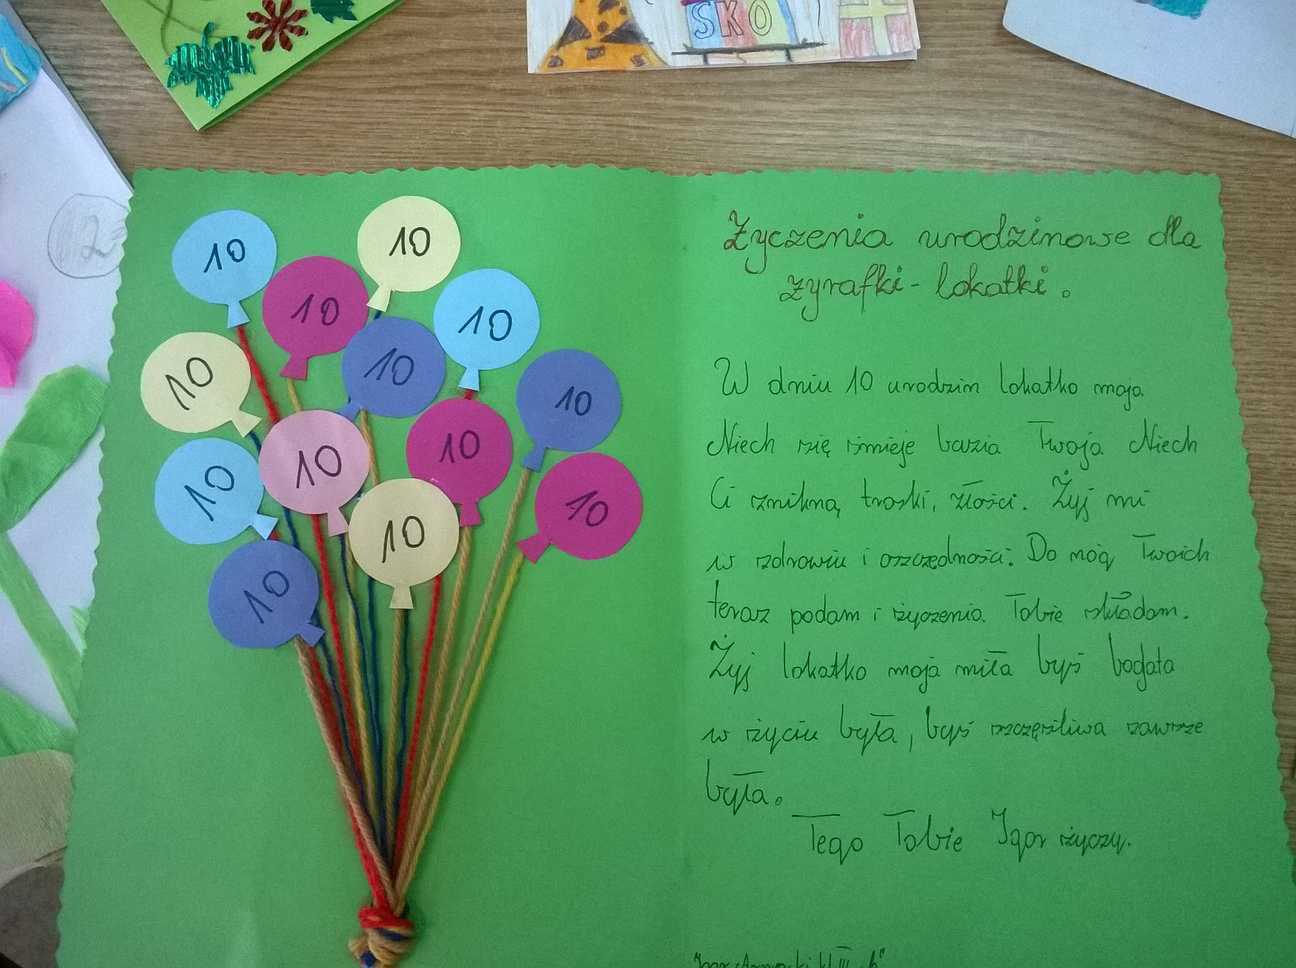 SKO
12
10
10
10
10
10
10
10
10
10
10
10
10
10
Życzenia urodzinowe dla
żyrafki - lokatki.
W dniu 10 urodzin lokatko moja
Niech się śmieje buzia Twoja Niech
Ci znikną troski, złości. Żyj mi
w zdrowiu i oszczędności. Do nóg Twoich
teraz podam i życzenia Tobie składam.
Żyj lokatko moja miła byś bogata
w życiu była, byś szczęśliwa zawsze
była.
Tego Tobie Igor życzy.
Igor kl III